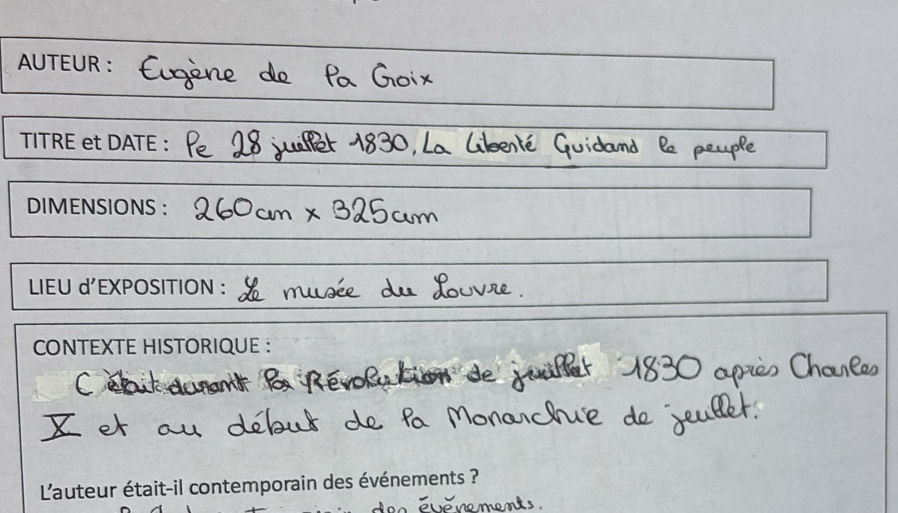 AUTEUR : Eugène de la Goix
TITRE et DATE : le 28 juillet 1830, La Liberté Guidand le peuple
DIMENSIONS : 260cm x 325cm
LIEU d'EXPOSITION : Le musée du Louvre.
CONTEXTE HISTORIQUE :
C'était durant la Révolution de juillet 1830 après Charles
X et au début de la Monarchie de jeullet.
L'auteur était-il contemporain des événements ?
des événements.